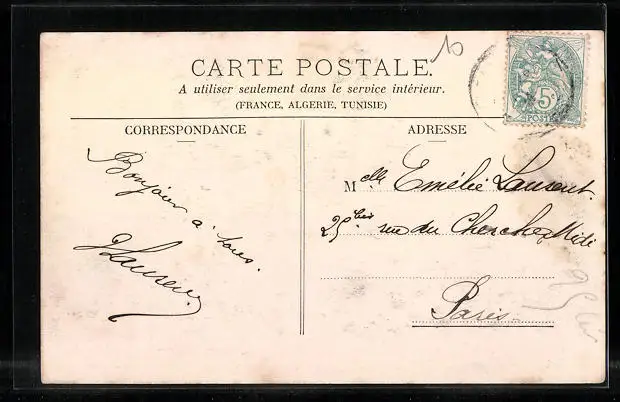 10
CARTE POSTALE.
A utiliser seulement dans le service intérieur.
(FRANCE, ALGERIE, TUNISIE)
5c
POSTES
CORRESPONDANCE
Bonjour à tous.
JLaurent
ADRESSE
Melle Emélie Laurent.
25 bis rue du Cherche Midi
Paris
25 bis